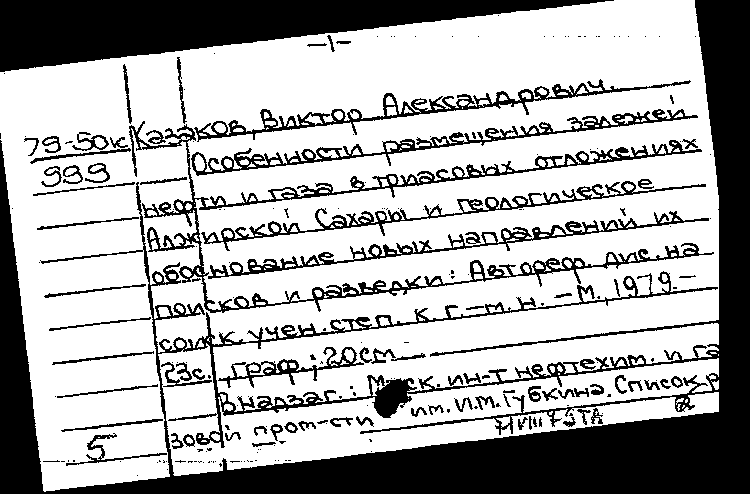 -1-
79-50к Казаков, Виктор Александрович.
999 Особенности размещения залежей
нефти и газа в триасовых отложениях
Алжирской Сахары и геологическое
обоснование новых направлений их
поисков и разведки: Автореф. дис. на
соиск. учен. степ. к. г.-м. н. - М., 1979.-
23с., граф.; 20см
В надзаг.: Моск. ин-т нефтехим. и га
5 зовой пром-сти им. И.М. Губкина. Список р